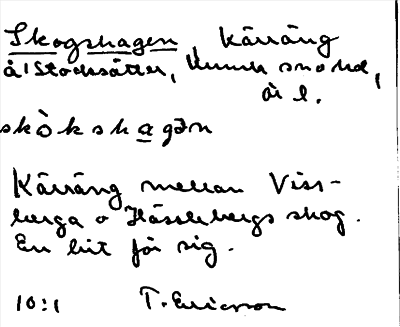 Skogshagen, Kärräng
å Stocksätter,
är l.
skòkshagən
Kärräng mellan Viss-
berga o Hässlebergs skog.
En bit för sig.
10:1 T. Ericsson